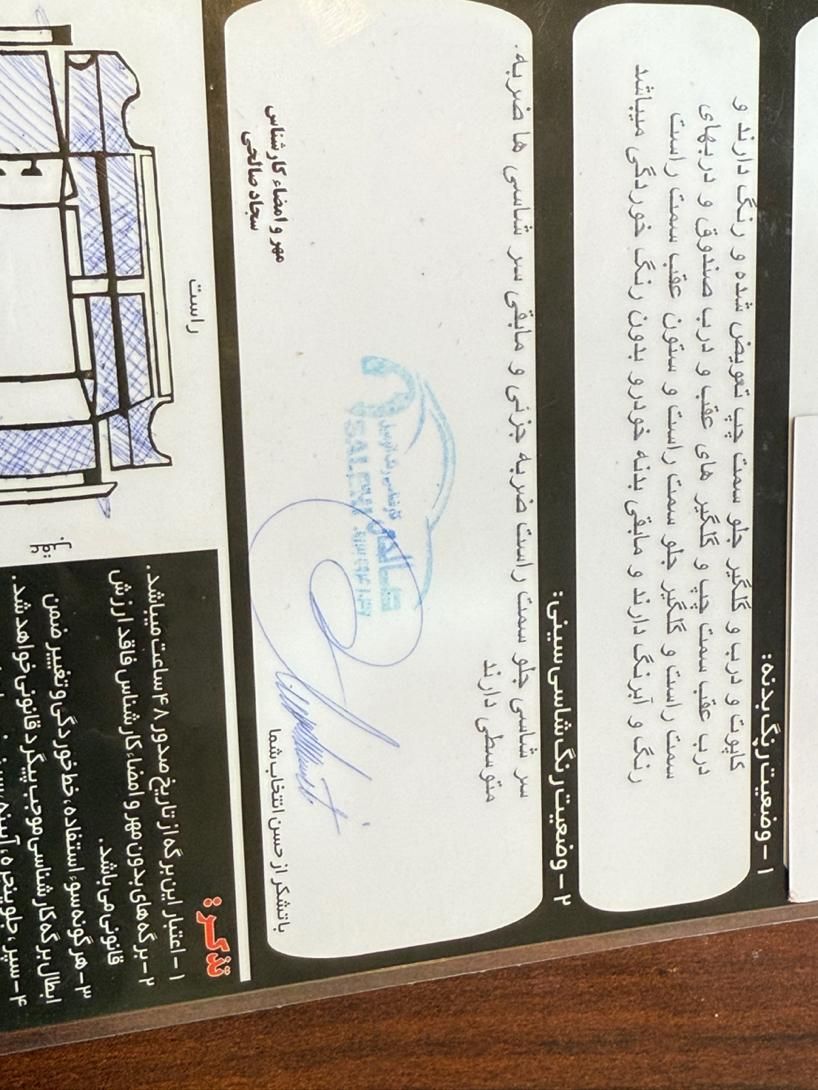 ۱- وضعیت رنگ بدنه:
کاپوت و درب و گلگیر جلو سمت چپ تعویض شده و رنگ دارند و
درب عقب سمت چپ و گلگیر های عقب و درب صندوق و دربهای
سمت راست و گلگیر جلو سمت راست و ستون عقب سمت راست
رنگ و آبرنگ دارند و مابقی بدنه خودرو بدون رنگ خوردگی میباشد
۲- وضعیت رنگ شاسی سینی:
سر شاسی جلو سمت راست ضربه جزئی و مابقی سر شاسی ها ضربه.
متوسطی دارند
صالحی
SALEHI
مهر و امضاء کارشناس
سجاد صالحی
باتشکر از حسن انتخاب شما
راست
تذکر:
۱- اعتبار این برگه از تاریخ صدور ۴۸ ساعت میباشد.
۲- برگه های بدون مهر و امضاء کارشناس فاقد ارزش
قانونی می باشد.
۳- هرگونه سوء استفاده، خط خوردگی و تغییر ضمن
ابطال برگه کارشناسی موجب پیگرد قانونی خواهد شد.
۴- سپر، جلو پنجره، آیینه،